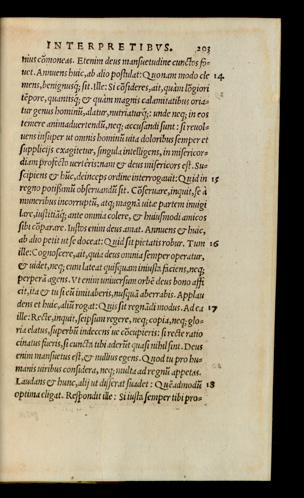 INTERPRETIBVS. 203
nius cōmoneas. Etenim deus mansuetudine cunctos fo-
uet. Annuens huic, ab alio postulat: Quonam modo cle 14
mens, benignusq; sit. Ille: Si cōsideres, ait, quàm lōgiori
tēpore, quantisq; & quàm magnis calamitatibus oria-
tur genus hominū, alatur, nutriaturq;: unde neq; in eos
temere animaduertendū, neq; accusandi sunt: si reuol-
uens insuper ut omnis hominū uita doloribus semper et
supplicijs exagitetur, singula intelligens, in misericor-
diam profecto uerteris: nam & deus misericors est. Su-
scipiens & hūc, deinceps ordine interrogauit: Quid in 15
regno potissimū obseruandū sit. Cōseruare, inquit, se à
muneribus incorruptū, atq; magnā uitæ partem inuigi
lare, iustitiāq; ante omnia colere, & huiusmodi amicos
sibi cōparare. Iustos enim deus amat. Annuens & huic,
ab alio petit ut se doceat: Quid sit pietatis robur. Tum 16
ille: Cognoscere, ait, quia deus omnia semper operatur,
& uidet, neq; eum lateat quisquam iniusta faciens, neq;
perperā agens. Vt enim uniuersum orbē deus bono affi
cit, ita & tu si eū imitaberis, nusquā aberrabis. Applau
dens et huic, aliū rogat: Quis sit regnādi modus. Ad ea 17
ille: Recte, inquit, seipsum regere, neq; copia, neq; glo-
ria elatus, superbū indecens ue cōcupieris: si recte ratio
cinatus fueris, si cuncta tibi aderūt quasi nihil sint. Deus
enim mansuetus est, & nullius egens. Quod tu pro hu-
manis uiribus considera, neq; multa ad regnū appetas.
Laudans & hunc, alij ut disserat suadet: Quēadmodū 18
optima eligat. Respondit ille: Si iusta semper tibi pro-